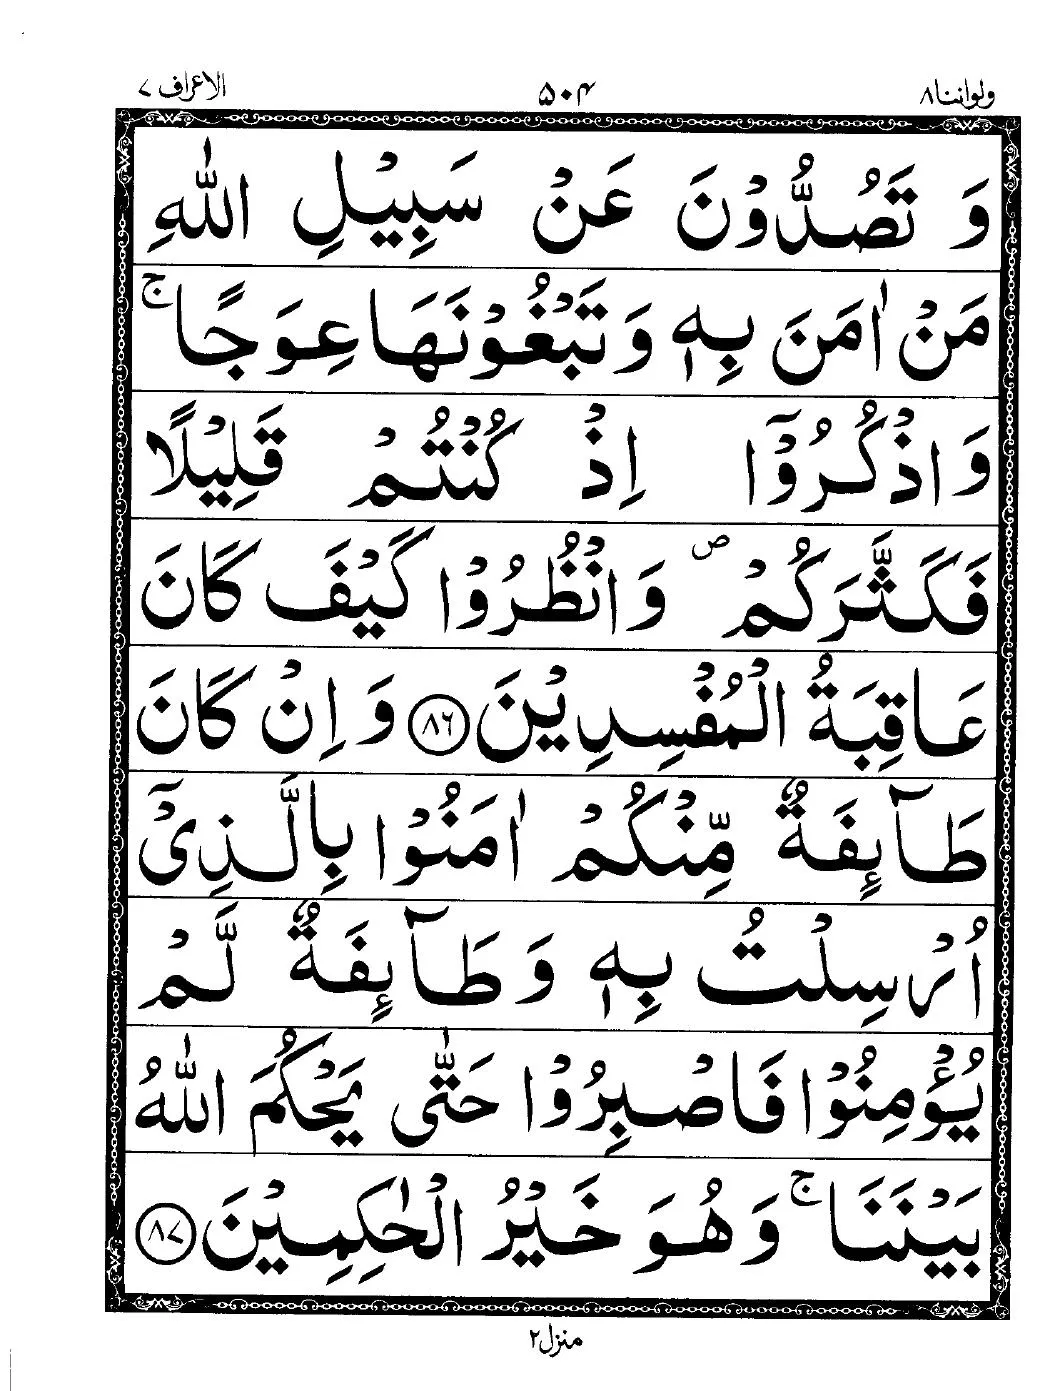 ولواننا ٨
۵۰۴
الاعراف ٧
وَ تَصُدُّوْنَ عَنْ سَبِيْلِ اللّٰهِ
مَنْ اٰمَنَ بِهٖ وَ تَبْغُوْنَهَا عِوَجًا ۚ
وَ اذْكُرُوْۤا اِذْ كُنْتُمْ قَلِيْلًا
فَكَثَّرَكُمْ ۪ وَ انْظُرُوْا كَيْفَ كَانَ
عَاقِبَةُ الْمُفْسِدِيْنَ ﴿٨٦﴾ وَ اِنْ كَانَ
طَآىِٕفَةٌ مِّنْكُمْ اٰمَنُوْا بِالَّذِيْۤ
اُرْسِلْتُ بِهٖ وَ طَآىِٕفَةٌ لَّمْ
يُؤْمِنُوْا فَاصْبِرُوْا حَتّٰى يَحْكُمَ اللّٰهُ
بَيْنَنَا ۚ وَ هُوَ خَيْرُ الْحٰكِمِيْنَ ﴿٨٧﴾
منزل ٢